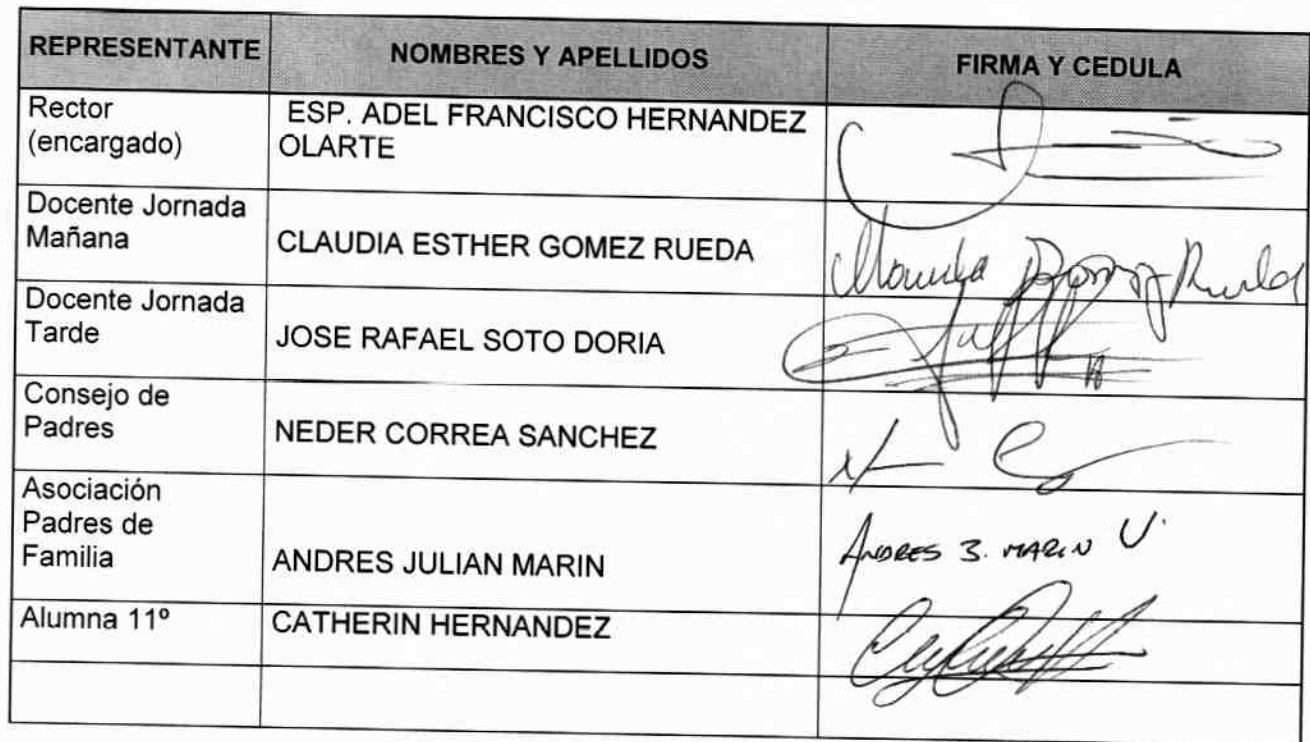 REPRESENTANTE NOMBRES Y APELLIDOS FIRMA Y CEDULA
Rector
(encargado)
ESP. ADEL FRANCISCO HERNANDEZ
OLARTE
Docente Jornada
Mañana
CLAUDIA ESTHER GOMEZ RUEDA
Docente Jornada
Tarde
JOSE RAFAEL SOTO DORIA
Consejo de
Padres
NEDER CORREA SANCHEZ
Asociación
Padres de
Familia
ANDRES JULIAN MARIN
ANDRES J. MARIN V.
Alumna 11º
CATHERIN HERNANDEZ